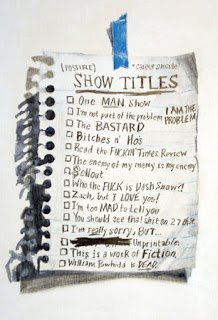 [POSSIBLE]
SHOW TITLES
One MAN Show
I'm not part of the problem I AM THE PROBLEM
The BASTARD
Bitches n' Ho's
Read the FUCKIN Times Review
The enemy of my enemy is my enemy
Sellout
Who the FUCK is Dash Snow?!
Zach, but I LOVE you!
I'm too MAD to tell you
You should see that Unit on 27
I'm really sorry, BUT...
Unprintable
This is a work of Fiction
William Powhida is DEAD